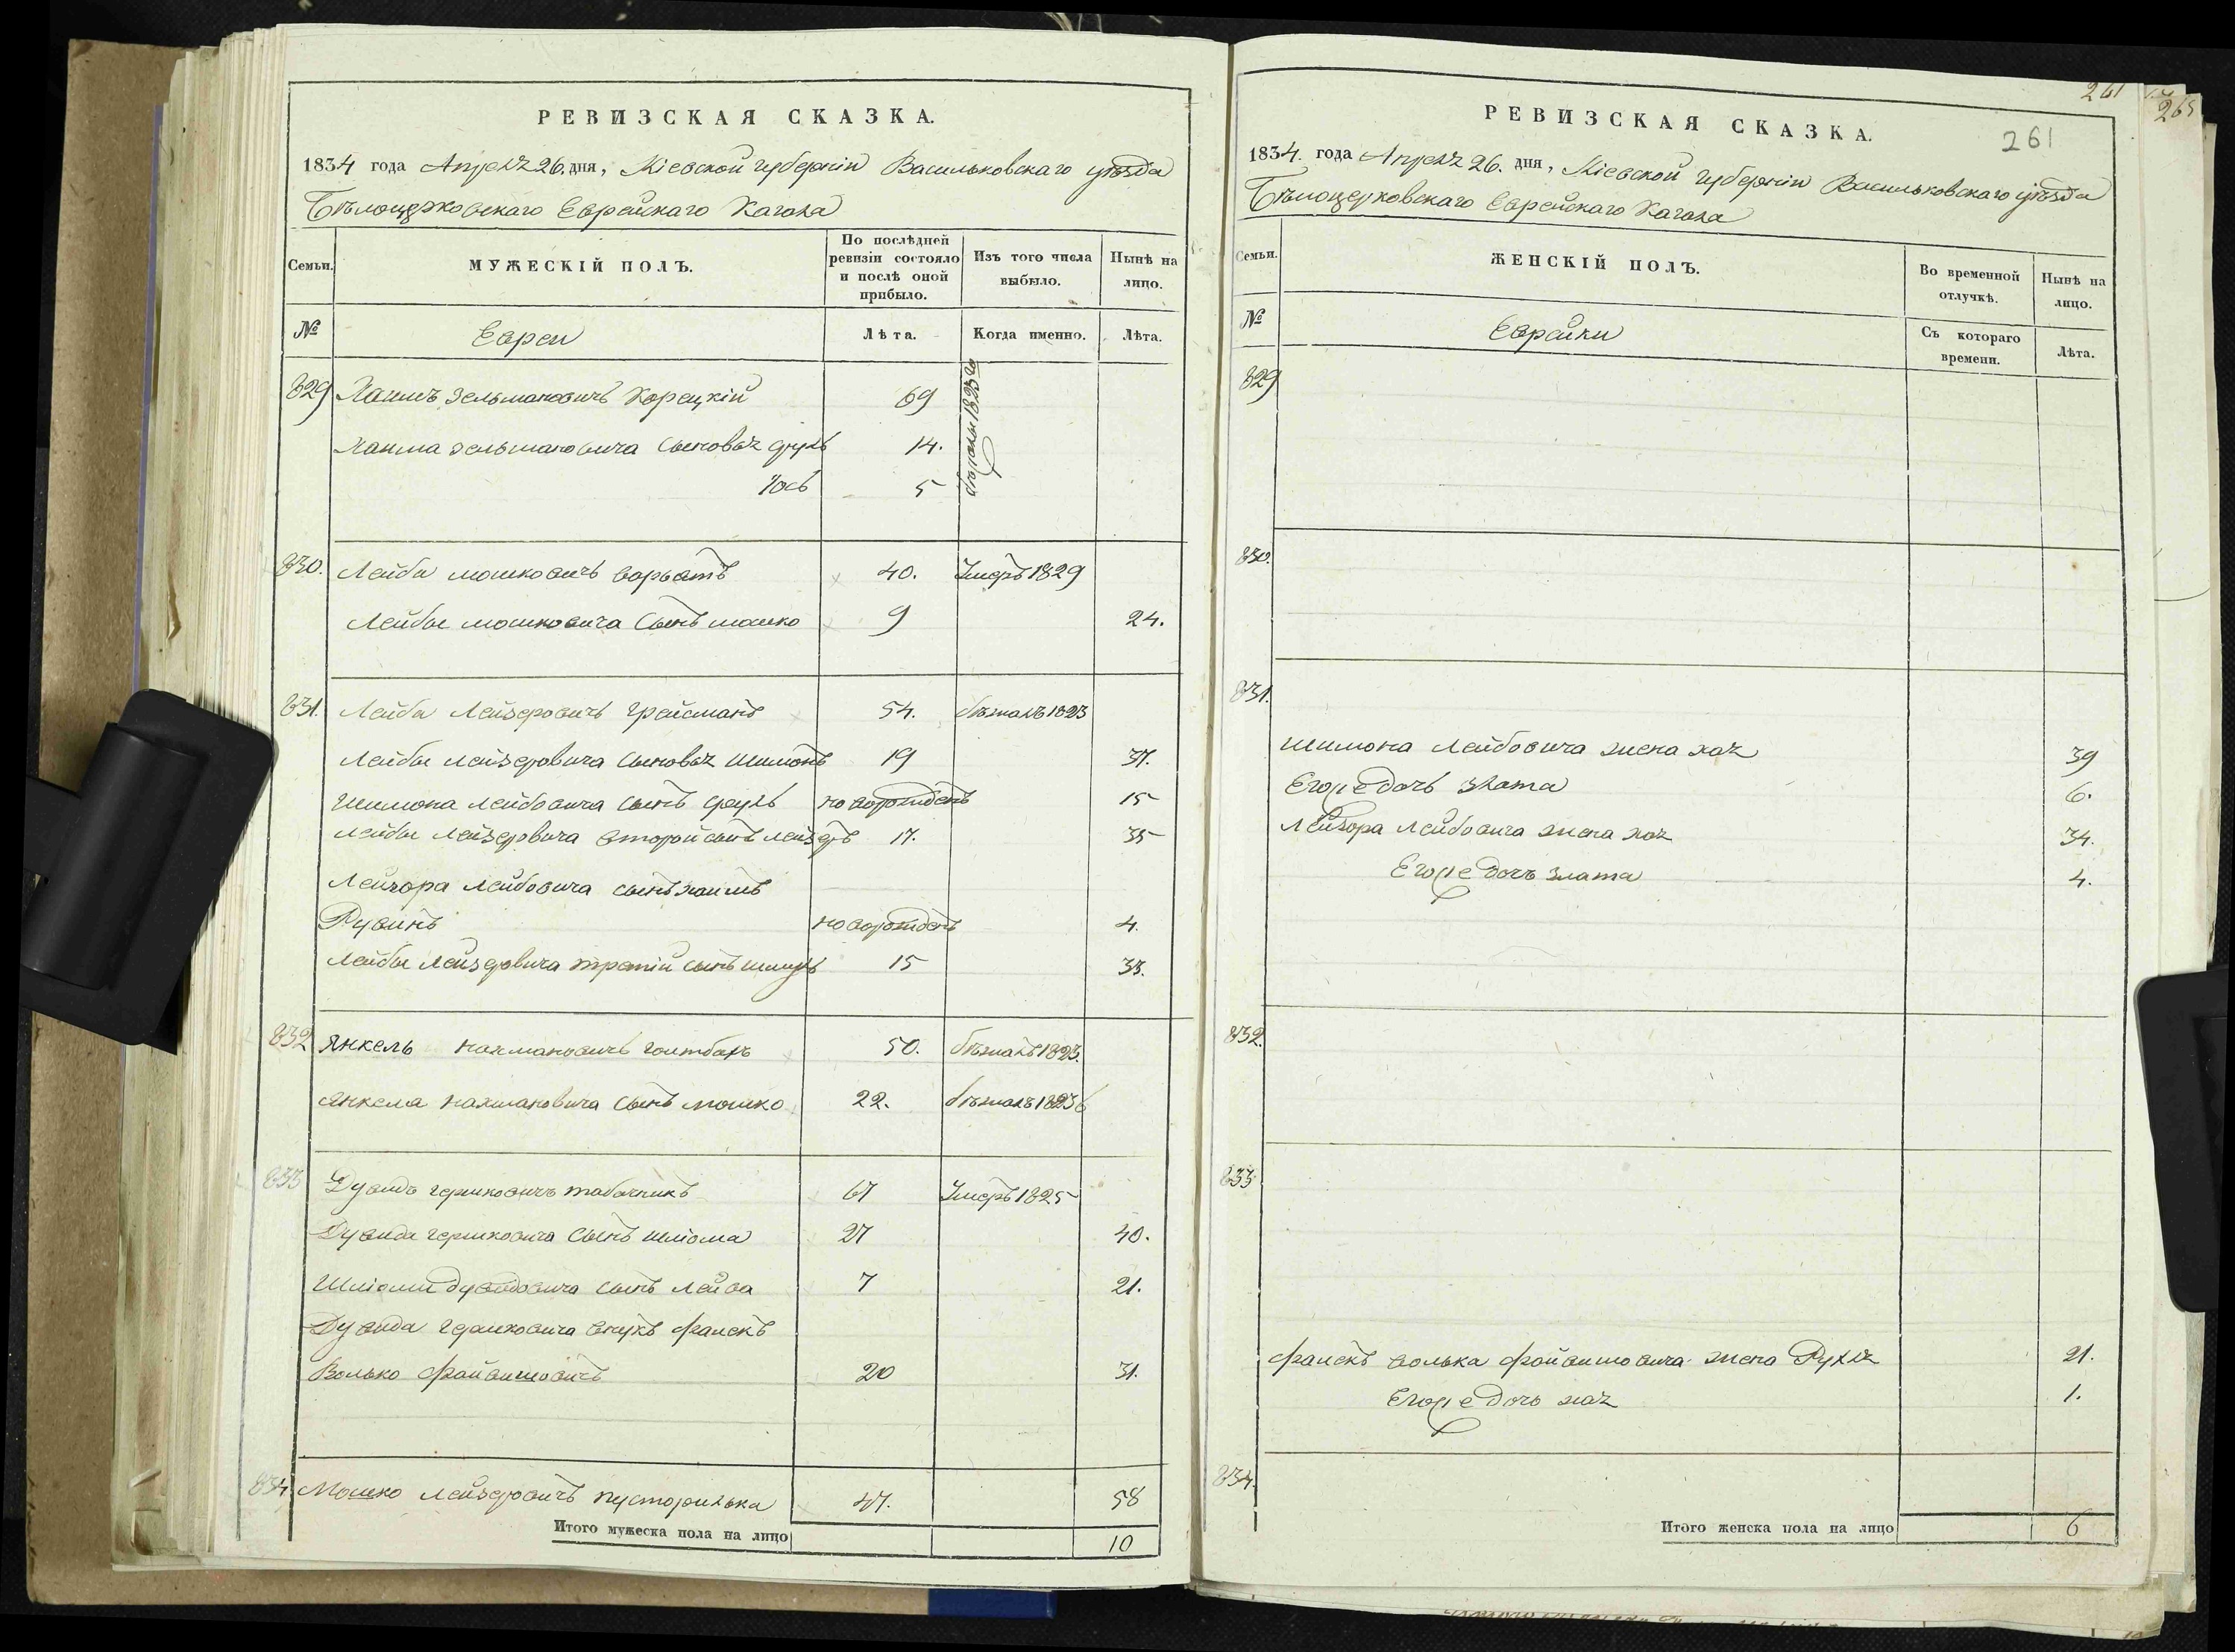 РЕВИЗСКАЯ СКАЗКА.
1834 года Апреля 26. дня, Кіевской губерніи Васильковскаго уѣзда
Бѣлоцерковскаго Еврейскаго Кагала
Семьи.
МУЖЕСКІЙ ПОЛЪ.
По послѣдней ревизіи состояло и послѣ оной прибыло.
Изъ того числа выбыло.
Нынѣ на лицо.
№
Евреи
Лѣта.
Когда именно.
Лѣта.
829 Хаимъ Зельмановичъ Корецкій 69
Хаима Зельмановича сыновья Сруль 14.
Іось 5
830. Лейба Мошковичъ 40. Умеръ 1829
Лейбы Мошковича сынъ Мошко 9 24.
831. Лейба Лейзеровичъ Грейсманъ 54. бѣжалъ 1823
Лейбы Лейзеровича сыновья Шимонъ 19 37.
Шимона Лейбовича сынъ Сруль новорожденъ 15
Лейбы Лейзеровича второй сынъ Лейзеръ 17. 35
Лейзора Лейбовича сынъ Хаимъ
Рувинъ новорожденъ 4.
Лейбы Лейзеровича третій сынъ Шмуль 15 33.
832 Янкель Нахмановичъ 50. бѣжалъ 1823.
Янкеля Нахмановича сынъ Мошко 22. бѣжалъ
833 Дувидъ Гершковичъ Табачникъ 67 Умеръ 1825
Дувида Гершковича сынъ Шліома 27 40.
Шліоми Дувидовича сынъ Лейба 7 21.
Дувида Гершковича внукъ Фраекъ
Волько Файвишовичъ 20 31.
834 Мошко Лейзеровичъ 47. 58
Итого мужеска пола на лицо 10
261
265
261
РЕВИЗСКАЯ СКАЗКА.
1834. года Апреля 26. дня, Кіевской губерніи Васильковскаго уѣзда
Бѣлоцерковскаго Еврейскаго Кагала
Семьи.
ЖЕНСКІЙ ПОЛЪ.
Во временной отлучкѣ.
Нынѣ на лицо.
№
Еврейки
Съ котораго времени.
Лѣта.
829
830.
831.
Шимона Лейбовича жена Хая 39
Его же дочь Злата 6.
Лейзора Лейбовича жена Хая 34.
Его же дочь Злата 4.
832.
833
Волька Файвишовича жена Рухля 21.
Его же дочь Хая 1.
834.
Итого женска пола на лицо 6